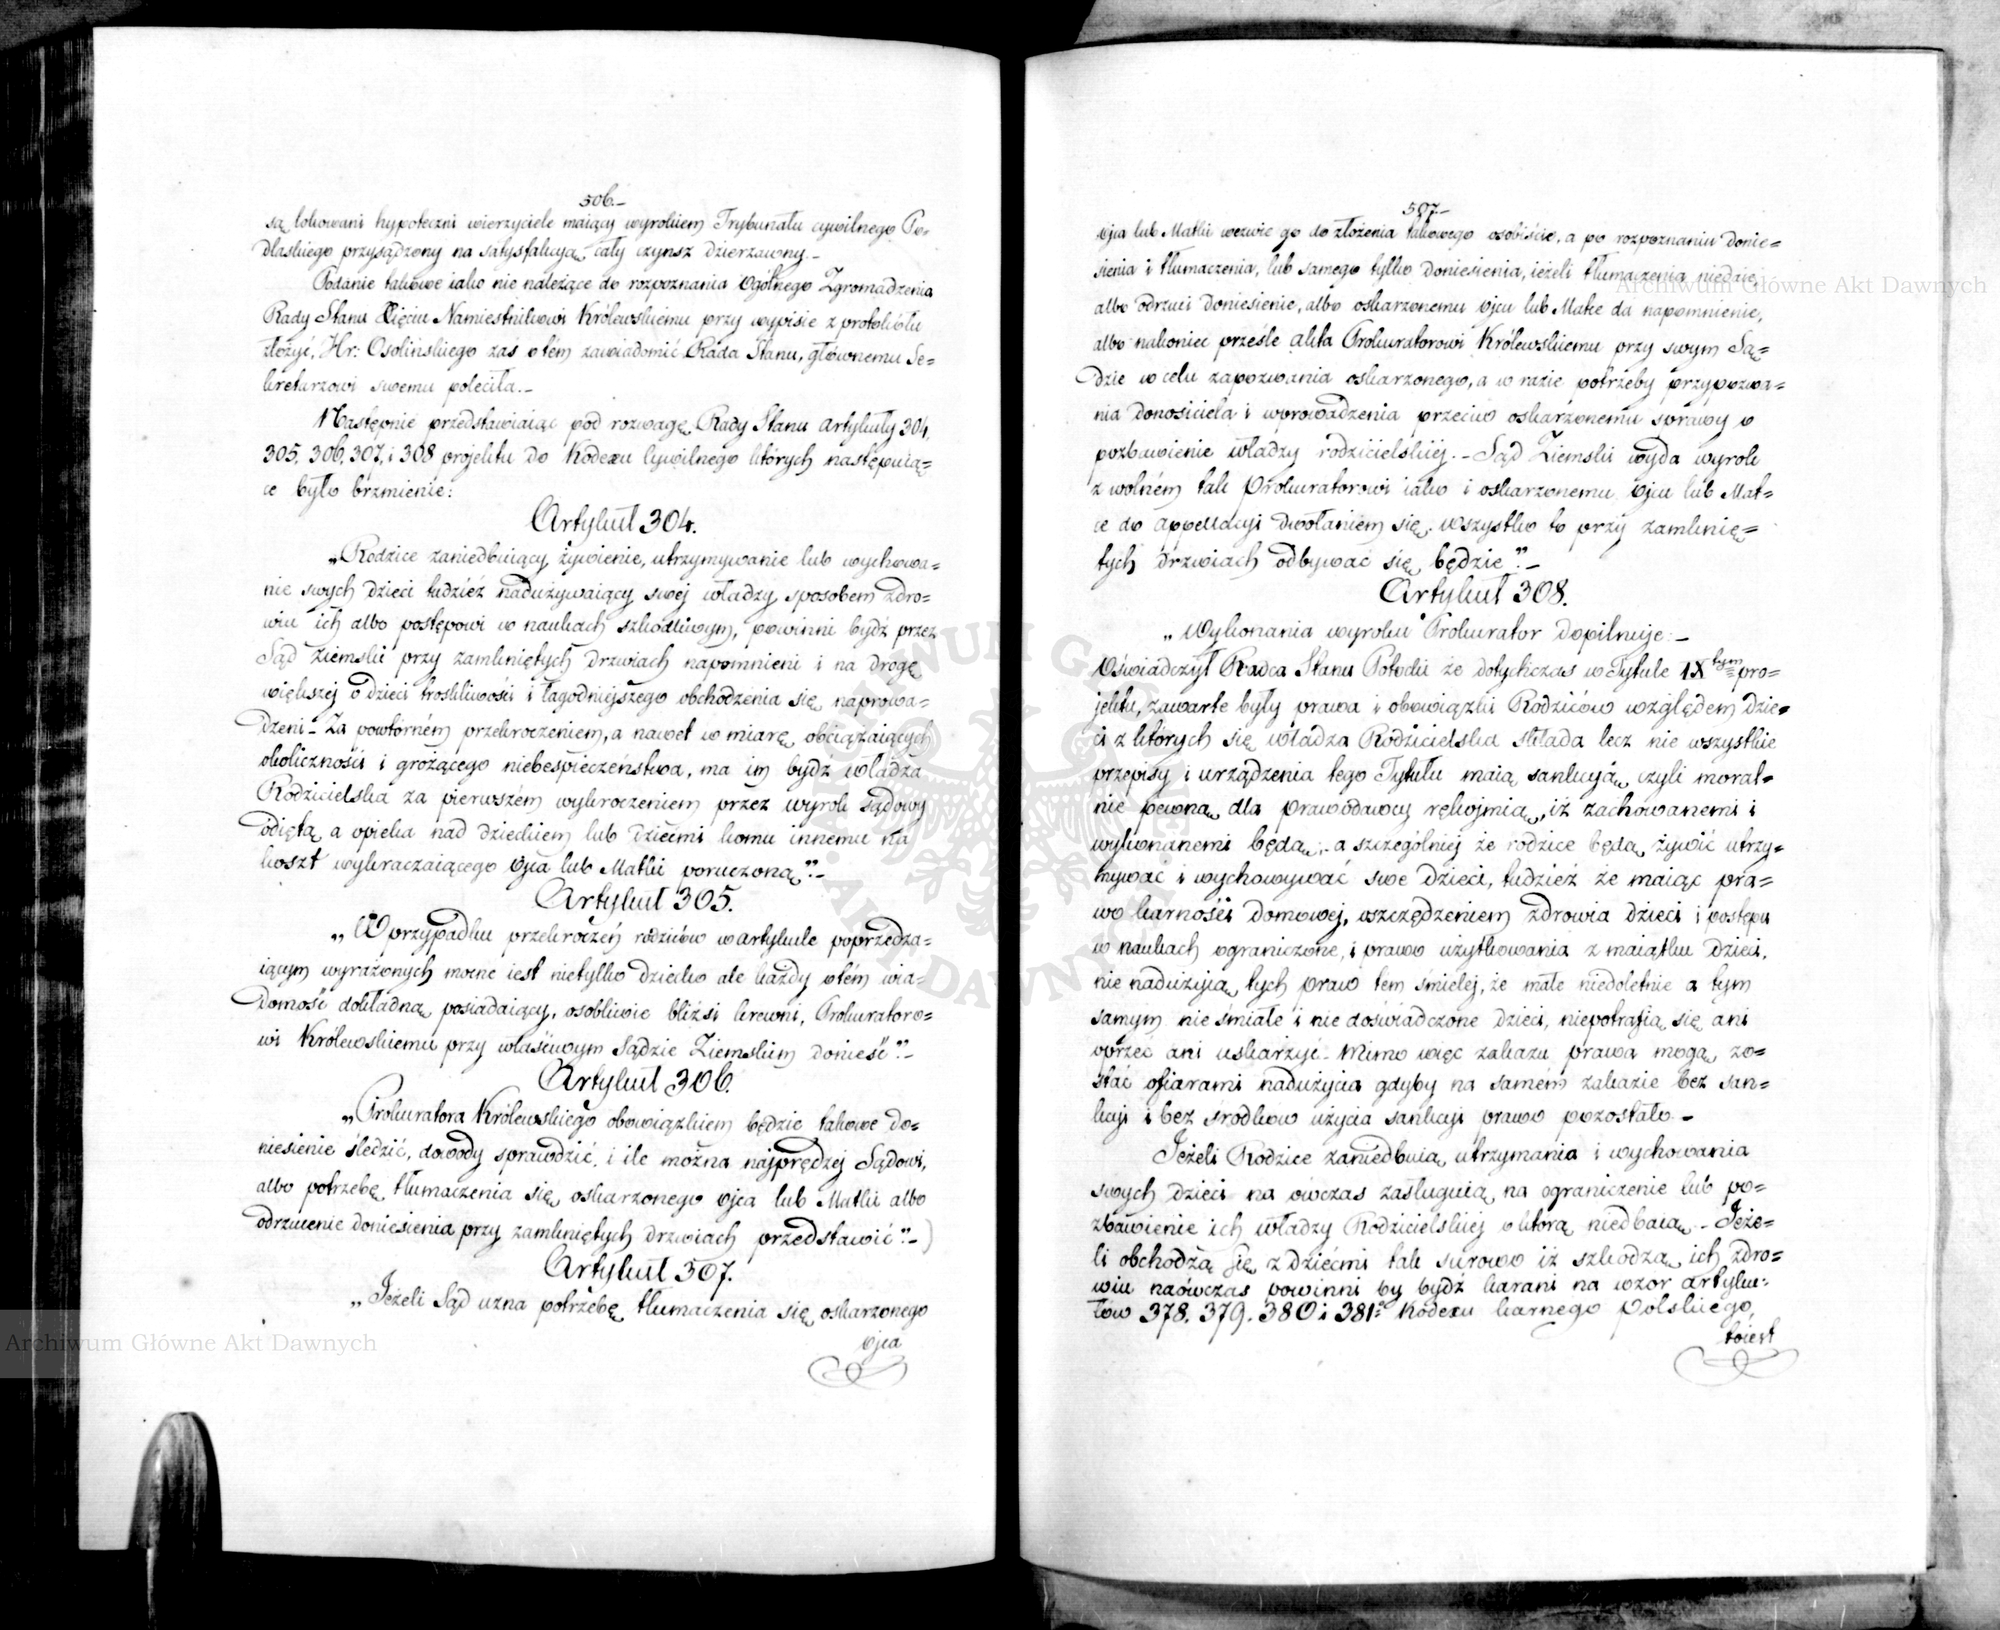 506.-
są lokowani hypoteczni wierzyciele maiący wyrokiem Trybunału cywilnego Po=
dlaskiego przysądzony na satysfakcyą, cały czynsz dzierzawny.-
Podanie takowe iako nie należące do rozpoznania Ogólnego Zgromadzenia
Rady Stanu Xięciu Namiestnikowi Królewskiemu przy wypisie z protokółu
złożyć, Hr: Osolińskiego zaś o tém zawiadomić Rada Stanu, głównemu Se=
kretarzowi swemu poleciła.-
Następnie przedstawiaiąc pod rozwagę Rady Stanu artykuły 304,
305, 306, 307, i 308 projektu do Kodexu Cywilnego których następuią=
ce było brzmienie:
Artykuł 304.
„Rodzice zaniedbuiący żywienie, utrzymywanie lub wychowa=
nie swych dzieci tudzież nadużywaiący swej władzy sposobem zdro=
wiu ich albo postępowi w naukach szkodliwym, powinni bydź przez
Sąd Ziemski przy zamkniętych drzwiach napomnieni i na drogę
większej o dzieci troskliwości i łagodniejszego obchodzenia się naprowa=
dzeni - Za powtórném przekroczeniem, a nawet w miarę obciążaiących
okoliczności i grożącego niebespieczeństwa, ma im bydź władza
Rodzicielska za pierwszém wykroczeniem przez wyrok sądowy
odiętą, a opieka nad dzieckiem lub dziećmi komu innemu na
koszt wykraczaiącego Ojca lub Matki poruczoną”.-
Artykuł 305.
„W przypadku przekroczeń rodziców w artykule poprzedza=
iącym wyrażonych mocne iest nietylko dziecko ale każdy o tém wia=
domość dokładną posiadaiący, osobliwie bliżsi krewni, Prokuratoro=
wi Królewskiemu przy właściwym Sądzie Ziemskim donieść”.-
Artykuł 306.
„Prokuratora Królewskiego obowiązkiem będzie takowe do=
niesienie śledzić, dowody sprawdzić, i ile można najprędzej Sądowi,
albo potrzebę tłumaczenia się oskarzonego ojca lub Matki albo
odrzucenie doniesienia przy zamkniętych drzwiach przedstawić”.-)
Artykuł 307.
„Jeżeli Sąd uzna potrzebę tłumaczenia się oskarzonego
ojca
507.-
ojca lub Matki wezwie go do złożenia takowego osobiście, a po rozpoznaniu donie=
sienia i tłumaczenia, lub samego tylko doniesienia, ieżeli tłumaczenia niedzie,
albo odrzuci doniesienie, albo oskarzonemu ojcu lub Matce da napomnienie,
albo nakoniec prześle akta Prokuratorowi Królewskiemu przy swym Są=
dzie w celu zapozwania oskarzonego, a w razie potrzeby przypozwa=
nia donosiciela i wprowadzenia przeciw oskarżonemu sprawy o
pozbawienie władzy rodzicielskiéj. - Sąd Ziemski wyda wyrok
z wolném tak Prokuratorowi iako i oskarzonemu Ojcu lub Mat=
ce do appellacyi dwołaniem się. wszystko to przy zamknię=
tych drzwiach odbywać się będzie”.-
Artykuł 308.
„Wykonania wyroku Prokurator dopilnuje.-
Oświadczył Radca Stanu Potocki że dotychczas w Tytule IXtym pro=
jektu, zawarte były prawa i obowiązki Rodziców względem dzie=
ci z których się władza Rodzicielska składa lecz nie wszystkie
przepisy i urządzenia tego Tytułu maią sankcyą, czyli moral=
nie pewną dla prawodawcy rękojmią, iż zachowanemi i
wykonanemi będą, - a szczególniej że rodzice będą żywić utrzy=
mywać i wychowywać swe dzieci, tudzież że maiąc pra=
wo karności domowej, oszczędzeniem zdrowia dzieci i postępu
w naukach ograniczone, i prawo użytkowania z maiątku dzieci,
nie nadużyią tych praw tém śmielej, że małe niedoletnie a tym
samym nie śmiałe i nie doświadczone dzieci, niepotrafią się ani
oprzeć ani uskarżyć. Mimo więc zakazu prawa mogą zo=
stać ofiarami nadużycia gdyby na samém zakazie bez san=
kcji i bez środków użycia sankcji prawo pozostało.-
Jeżeli Rodzice zaniedbuią utrzymania i wychowania
swych dzieci na ówczas zasługuią na ograniczenie lub po=
zbawienie ich władzy Rodzicielskiej o którą niedbaią. - Jeże=
li obchodzą się z dziećmi tak surowo iż szkodzą ich zdro=
wiu naówczas powinni by bydź karani na wzor artyku=
łów 378. 379. 380 i 381o Kodexu karnego Polskiego,
toiest
Archiwum Główne Akt Dawnych
Archiwum Główne Akt Dawnych
ARCHIWUM GŁÓWNE AKT DAWNYCH